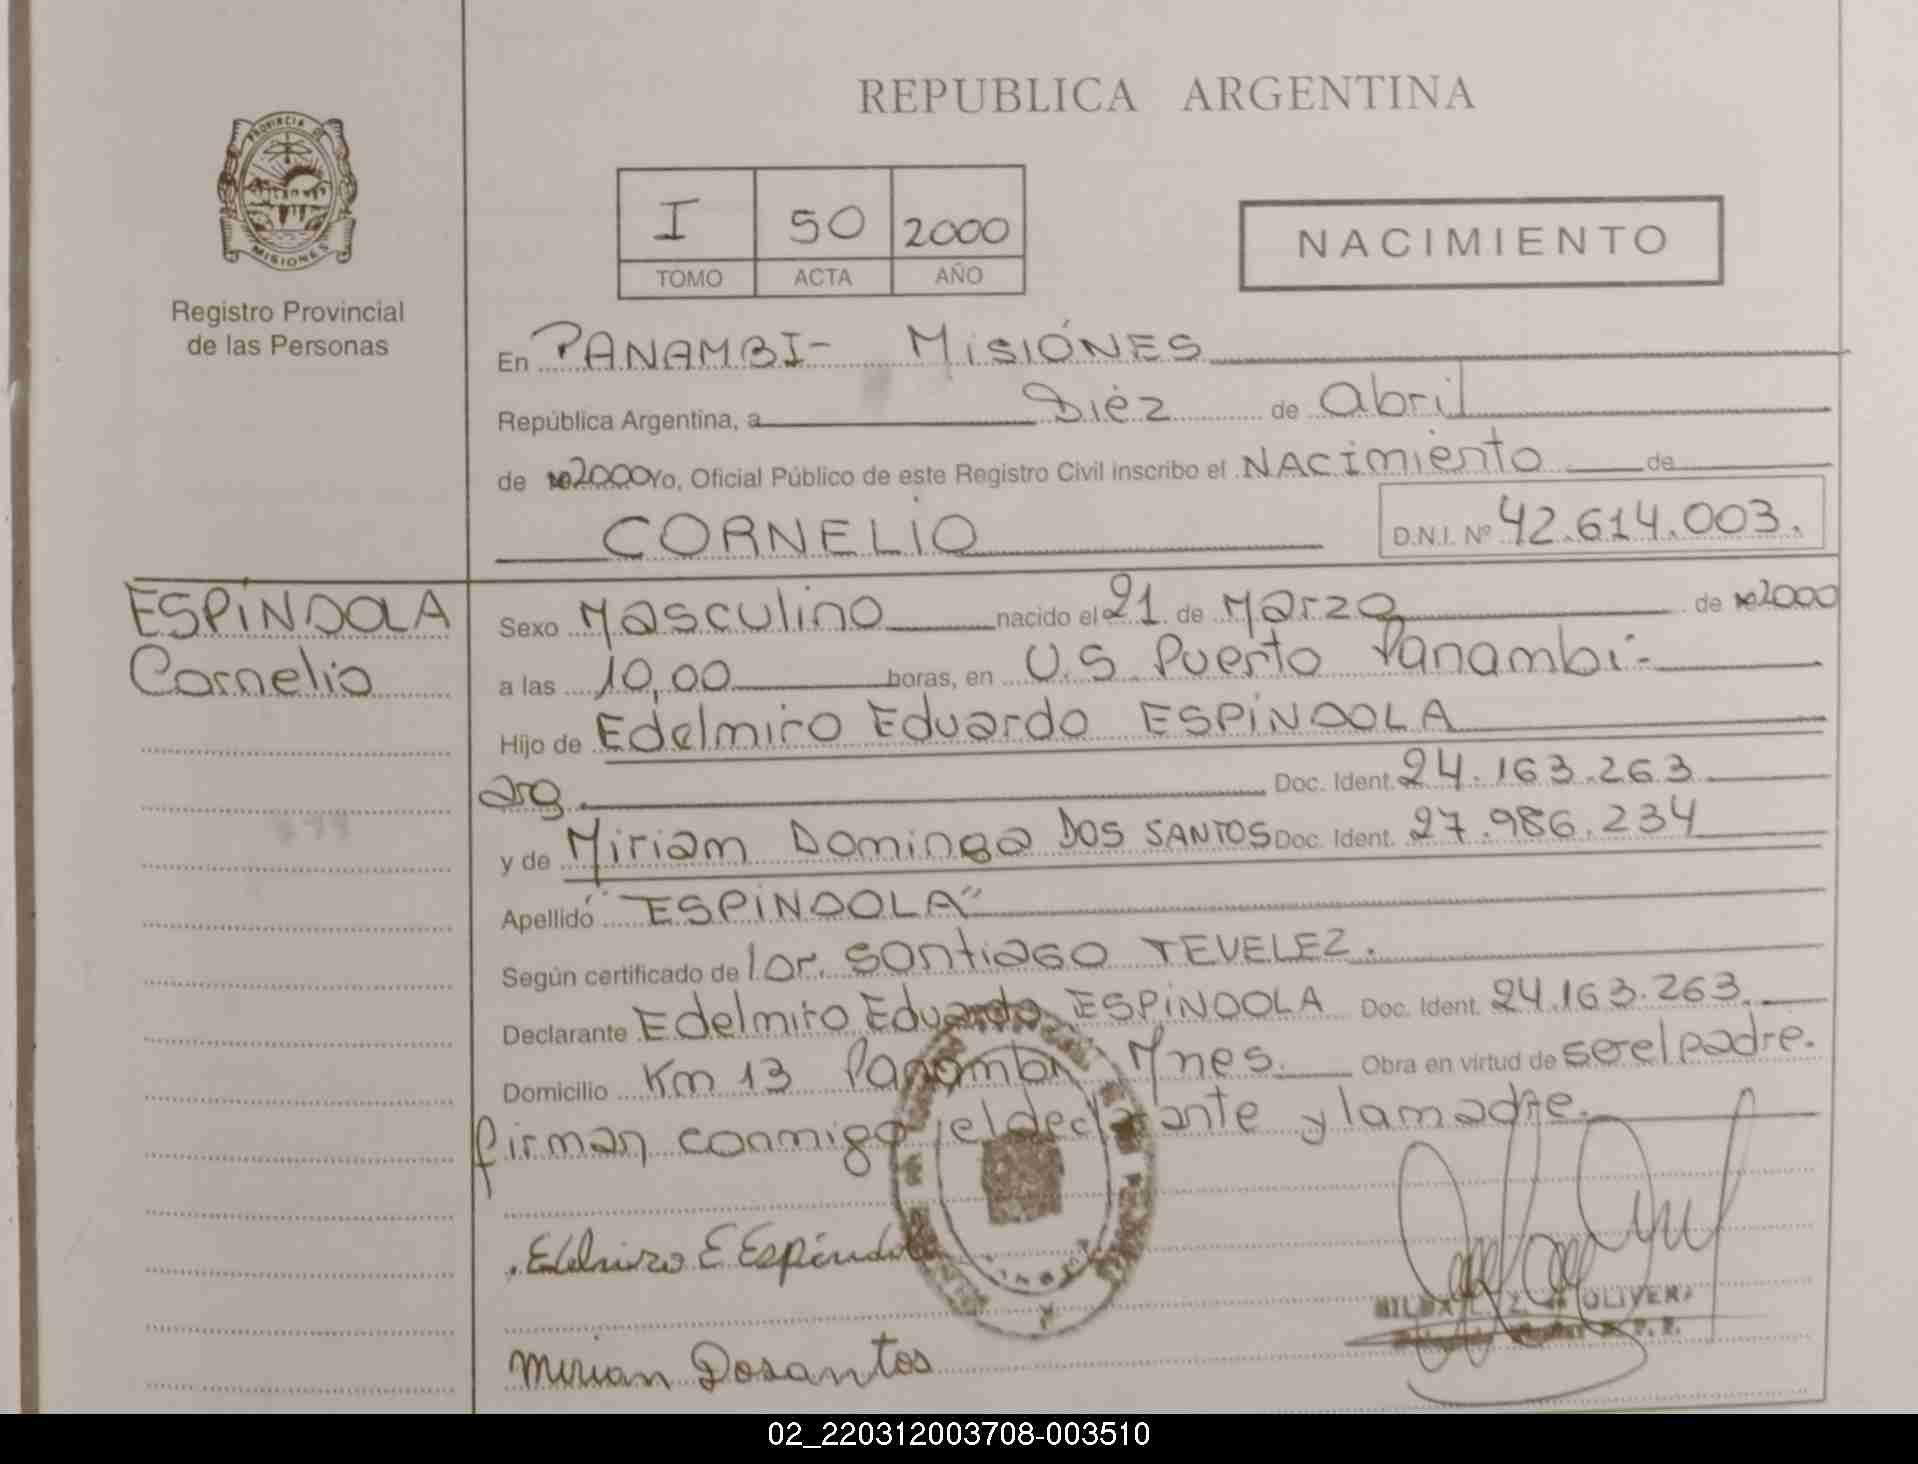 REPUBLICA ARGENTINA
PROVINCIA DE
MISIONES
Registro Provincial
de las Personas
I 50 2000
TOMO ACTA AÑO
NACIMIENTO
En PANAMBI- MISIÓNES
República Argentina, a Diéz de abril
de 2000 Yo, Oficial Público de este Registro Civil inscribo el NACimiento de
CORNELIO
D.N.I. Nº 42.614.003.
ESPÍNDOLA
Cornelio
Sexo Masculino nacido el 21 de Marzo de 2000
a las 10,00 horas, en U.S. Puerto Panambi-
Hijo de Edelmiro Eduardo ESPÍNDOLA
arg. Doc. Ident. 24.163.263
y de Miriam Dominga DOS SANTOS Doc. Ident. 27.986.234
Apellido "ESPÍNDOLA"
Según certificado de Santiago TEVELEZ.
Declarante Edelmiro Eduardo ESPÍNDOLA Doc. Ident. 24.163.263.
Domicilio Km 13 Panambi Mnes. Obra en virtud de ser el padre.
firman conmigo, el declarante y la madre.
Edelmiro E Espíndola
Mirian Dosantos
OLIVERA
02_220312003708-003510